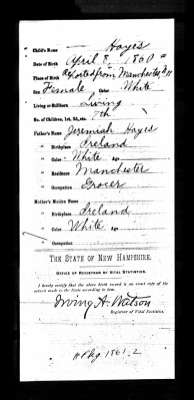 Child's Name Hayes
Date of Birth April 8, 1860
Place of Birth Reported from Manchester N.H.
Sex Female Color White
Living or Stillborn Living
No. of Children, 1st, 2d, etc. 7th
Father's Name Jeremiah Hayes
" Birthplace Ireland
" Color White Age
" Residence Manchester
" Occupation Grocer
Mother's Maiden Name
" Birthplace Ireland
" Color White Age
" Occupation
THE STATE OF NEW HAMPSHIRE.
OFFICE OF REGISTRAR OF VITAL STATISTICS.
I hereby certify that the above birth record is an exact copy of the
return made to the State according to law.
Irving A. Watson
Registrar of Vital Statistics.
1861-2